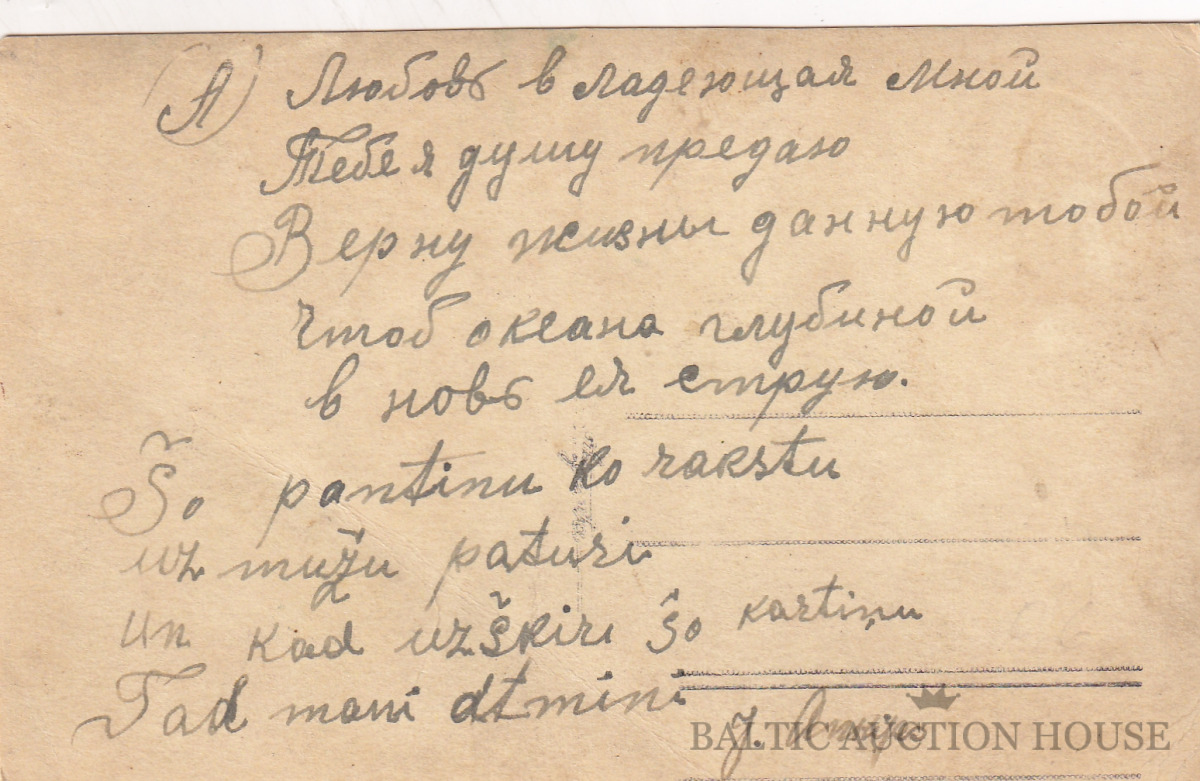 (А) Любовь владеющая мной
Тебе я душу предаю
Верну жизны данную тобой
Чтоб океана глубиной
в новь ея струю.
Šo pantinu ko rakstu
uz mužu paturi
un kad uzškiri šo kartiņu
Tad mani atmini
J.
BALTIC AUCTION HOUSE